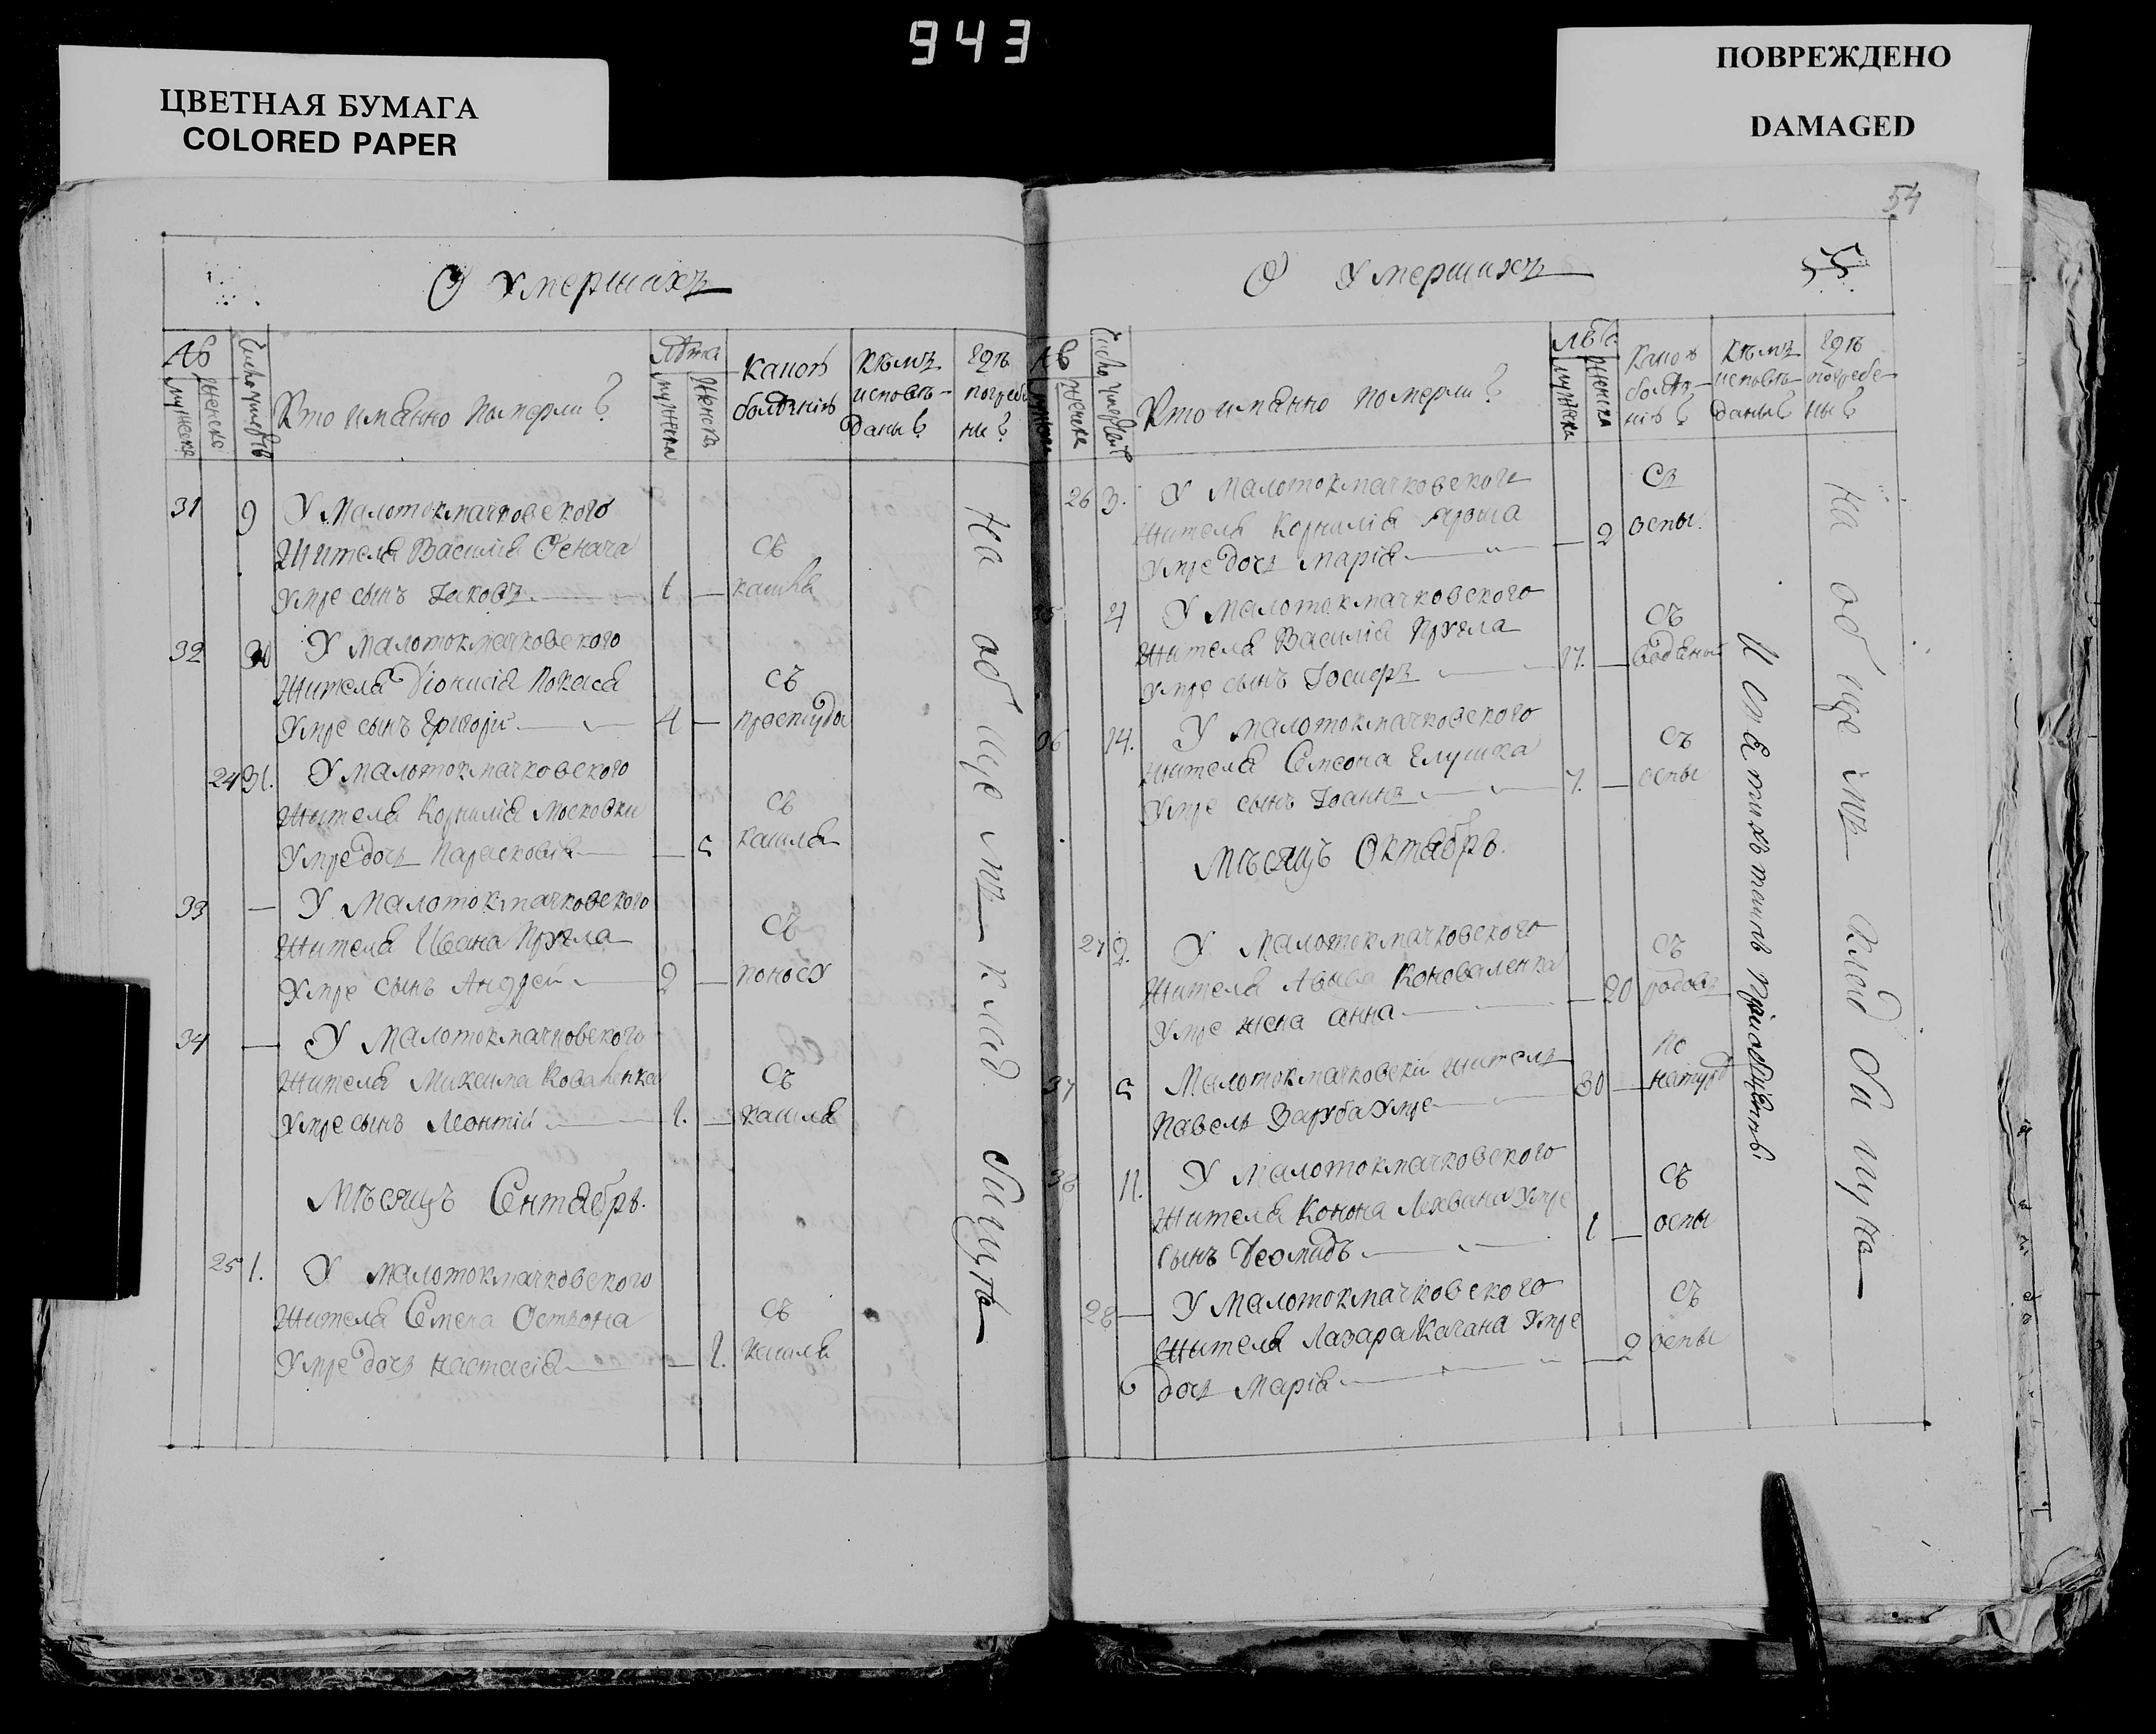 943
ЦВЕТНАЯ БУМАГА
COLORED PAPER
ПОВРЕЖДЕНО
DAMAGED
О Умершихъ
№
мужеска
женска
Число умертв
Кто имянно померли?
Лѣта
мужска
женска
Какой
болѣзнію
Кѣмъ
исповѣ-
даны?
Гдѣ
погребе
ны?
31 9 У Малотокмачковского
жителя Василія
умре сынъ Іаковъ 1 — съ
кашля
32 30 У малотокмачковского
жителя Діонисія Покаса
умре сынъ Григорій 4 — съ
простуды
24 31. У малотокмачковского
жителя Корнилія Московки
умре дочь Парасковія — 5 съ
кашля
33 — У Малотокмачковского
жителя Ивана Пругла
умре сынъ Андрей 2 — съ
поносу
34 — У Малотокмачковского
жителя Максима Коваленка
умре сынъ Леонтій 1. — съ
кашля
Мѣсяцъ Сентябрь.
25 1. У малотокмачковского
жителя Семена
умре дочь Настасія — 1. съ
кашля
На общемъ кладбищѣ
54
О Умершихъ
55
№
мужеска
женска
Кто имянно померли?
Лѣта
мужска
женска
Какою
болѣз-
нію?
Кѣмъ
исповѣ-
даны?
Гдѣ
погребе-
ны?
26 3. У Малотокмачковского
жителя Корнилія Яроша
умре дочь Марія — 2 Съ
оспы.
35 4 У Малотокмачковского
жителя Василія Пругла
умре сынъ Іосифъ 17. — съ
водяной
36 14. У малотокмачковского
жителя Симеона Глушка
умре сынъ Іоаннъ 7. — съ
оспы
Мѣсяцъ Октябрь.
27 2. У Малотокмачковского
жителя Коноваленка
умре жена Анна — 20 съ
родовъ
37 5 Малотокмачковскій житель
Павелъ Заруба умре 30 — по
натурѣ
38 11. У Малотокмачковского
жителя Конона умре
сынъ Деомидъ 1 — съ
оспы
28 — У Малотокмачковского
жителя Лазара Качана умре
6 дочь Марія — 2 съ
оспы
На общемъ кладбищѣ